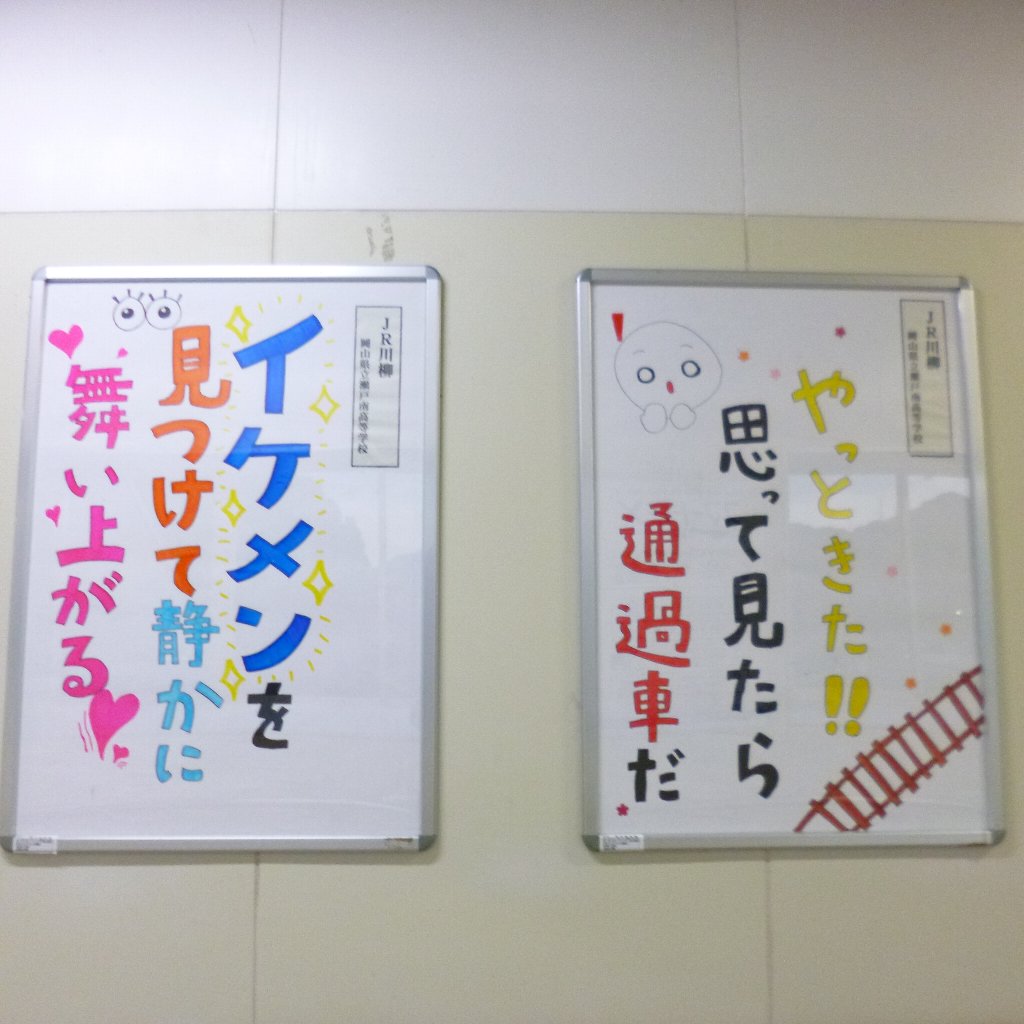 JR川柳
岡山県立瀬戸南高等学校
イケメンを
見つけて静かに
舞い上がる
JR川柳
岡山県立瀬戸南高等学校
やっときた!!
思って見たら
通過車だ